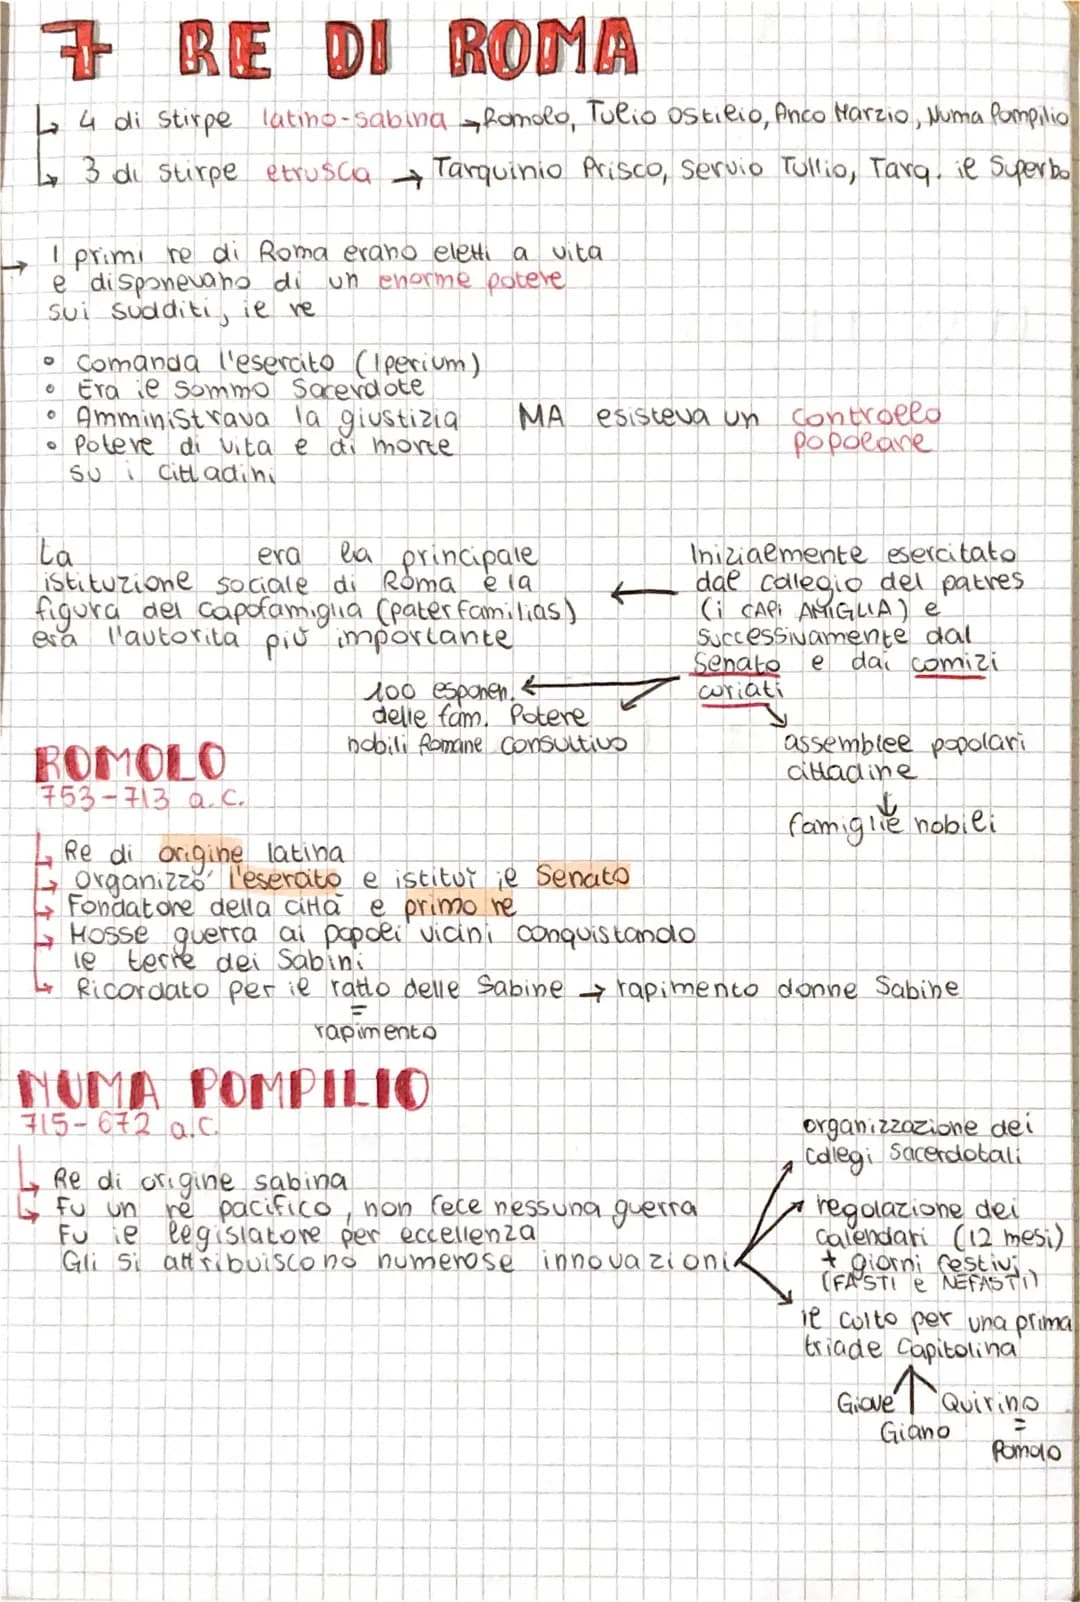 7 RE DI ROMA
↳ 4 di stirpe latino-sabina → Romolo, Tulio Ostilio, Anco Marzio, Numa Pompilio
↳ 3 di stirpe etrusca → Tarquinio Prisco, Servio Tullio, Tarq. il Superbo
→ I primi re di Roma erano eletti a vita
e disponevano di un enorme potere
sui sudditi, il re
• Comanda l'esercito (Iperium)
• Era il Sommo Sacerdote
• Amministrava la giustizia MA esisteva un controllo
popolare
• Potere di vita e di morte
su i cittadini
La era la principale
istituzione sociale di Roma e la
figura del capofamiglia (paterfamilias)
era l'autorita più importante
Inizialmente esercitato
dal collegio del patres
(i CAPI AMIGLIA) e
Successivamente dal
Senato e dai comizi
curiati
100 esponen.
delle fam. Potere
nobili Romane consultivo
assemblee popolari
cittadine
↓
famiglie nobili
ROMOLO
753-713 a.C.
↳ Re di origine latina
↳ Organizzò l'esercito e istituì il Senato
↳ Fondatore della città e primo re
↳ Mosse guerra ai popoli vicini conquistando
le terre dei Sabini
↳ Ricordato per il ratto delle Sabine → rapimento donne Sabine
=
rapimento
NUMA POMPILIO
715-672 a.C.
↳ Re di origine sabina
↳ Fu un re pacifico, non fece nessuna guerra
Fu il legislatore per eccellenza
Gli si attribuiscono numerose innovazioni
organizzazione dei
collegi Sacerdotali
regolazione dei
calendari (12 mesi)
+ giorni festivi
(FASTI e NEFASTI)
il culto per una prima
triade Capitolina
Giove ↑ Quirino
Giano =
Romolo